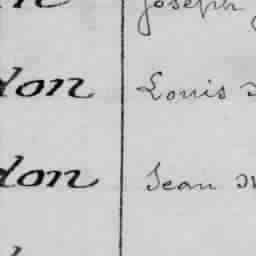 Joseph
don Louis
don Jean